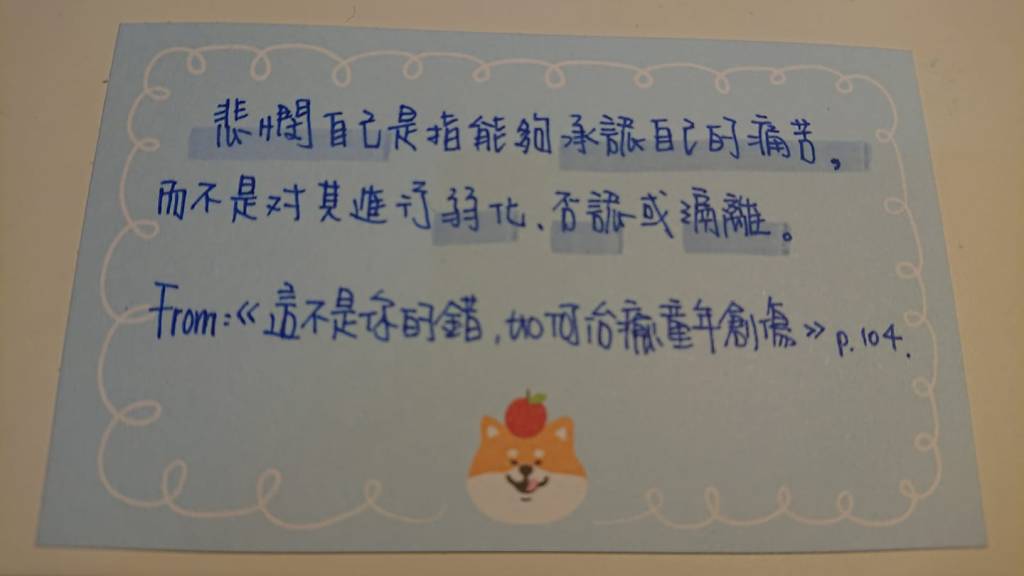 悲憫自己是指能夠承認自己的痛苦，
而不是对其進行弱化、否認或隔離。
From：《這不是你的錯，如何治癒童年創傷》p.104.